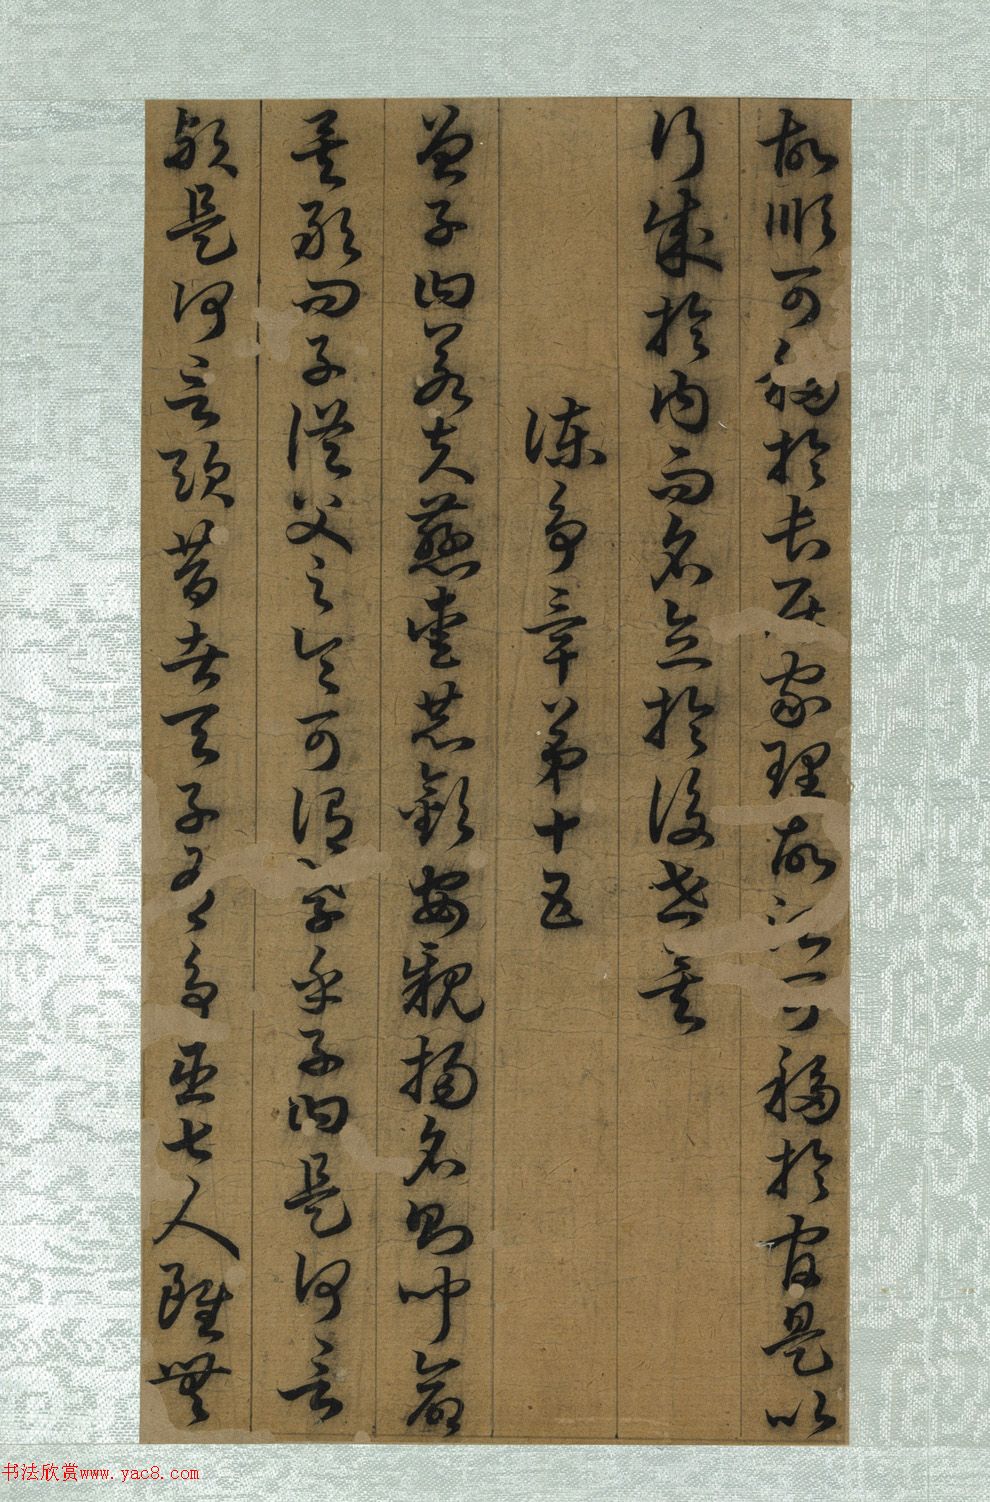 故順可移於長居家理故治可移於官是以
行成於內而名立於後世矣
諫爭章第十五
曾子曰若夫慈愛恭敬安親揚名則聞命
矣敢問子從父之令可謂孝乎子曰是何言
歟是何言歟昔者天子有爭臣七人雖無
书法欣赏www.yac8.com